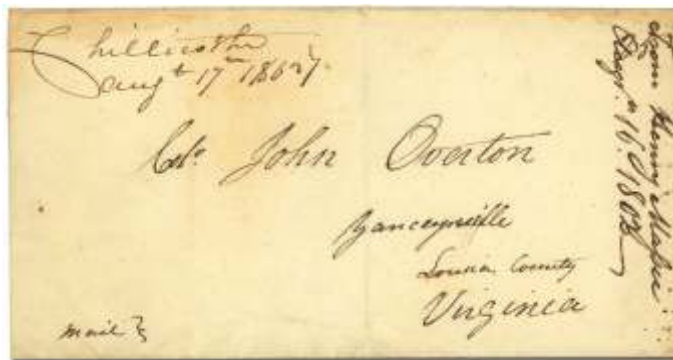 Chillicothe
Augt 17th 1802
Colo John Overton
Yanceyville
Louisa County
Virginia
mail
From Henry Massie
Augt. 16. 1802